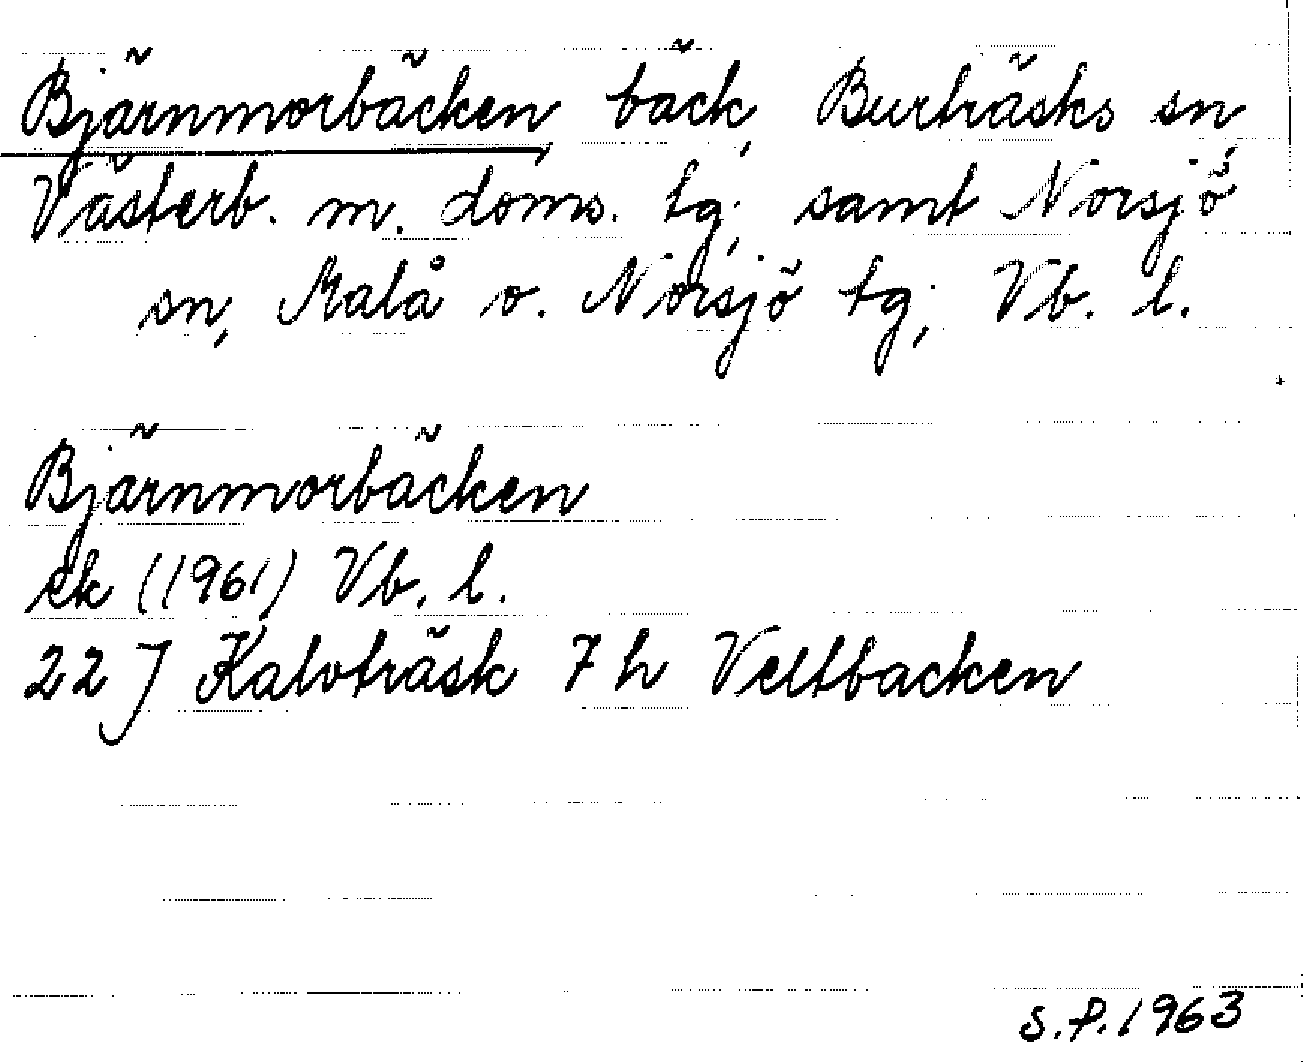 Bjärnmorbäcken, bäck, Burträsks sn,
Västerb. m. doms. tg; samt Norsjö
sn, Malå o. Norsjö tg; Vb. l.
Bjärnmorbäcken
ek (1961) Vb. l.
22 J Kalvträsk 7 h Veltbacken
S.P. 1963